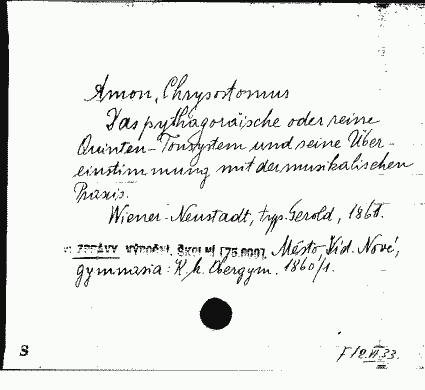 Amon, Chrysostomus
Das pythagoräische oder reine
Quinten-Tonsystem und seine Über-
einstimmung mit der musikalischen
Praxis.
Wiener-Neustadt, typ. Gerold, 1860.
ZPRÁVY VÝROČNÍ, ŠKOLNÍ [75.000]. Město, Víd. Nové,
gymnasia: K. k. Obergym. 1860/1.
S